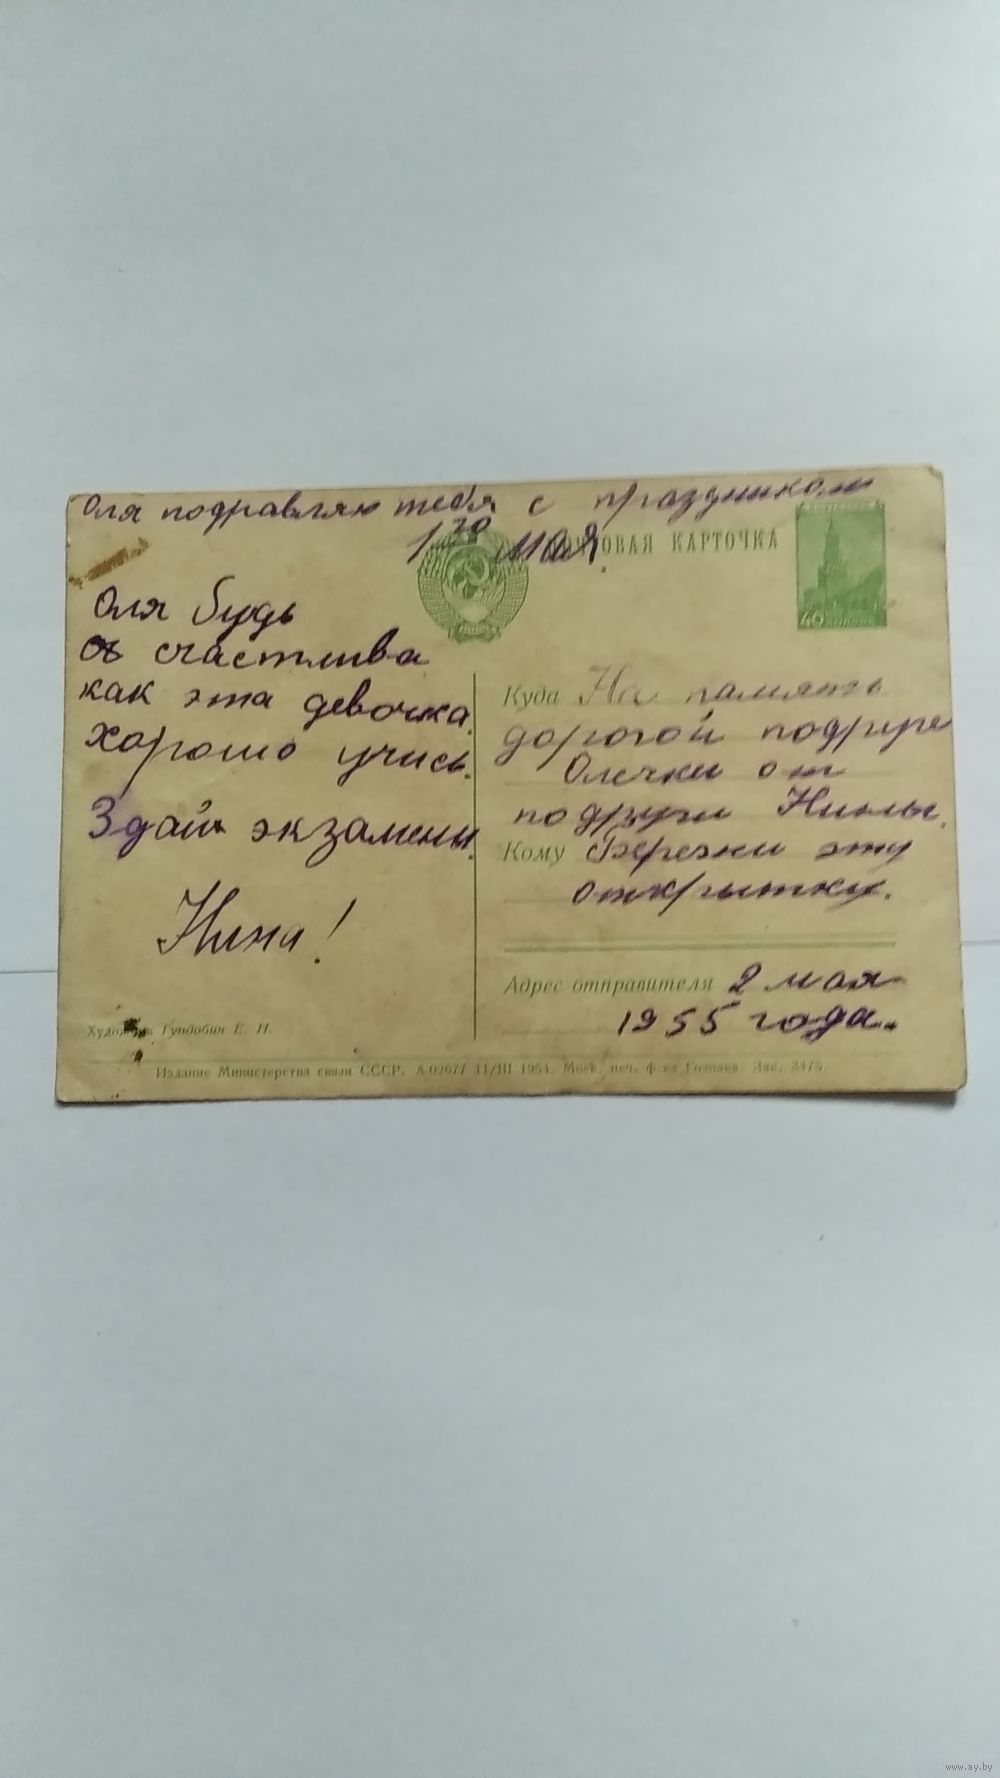 Оля подравляю тебя с праздником
1го мая.
ПОЧТОВАЯ КАРТОЧКА
40
Оля будь
счастлива
как эта девочка.
Хорошо учись.
Здай экзамены.
Нина!
Куда На память
дорогой подруге
Олечки от
подруги Нины.
Кому Беречки эту
открытку.
Адрес отправителя 2 мая
1955 года.
Художник Гундобин Е. Н.
Издание Министерства связи СССР. А-02677 11/III 1954. Моск. печ. ф-ка Гознака. Зак. 3475.
www.ay.by